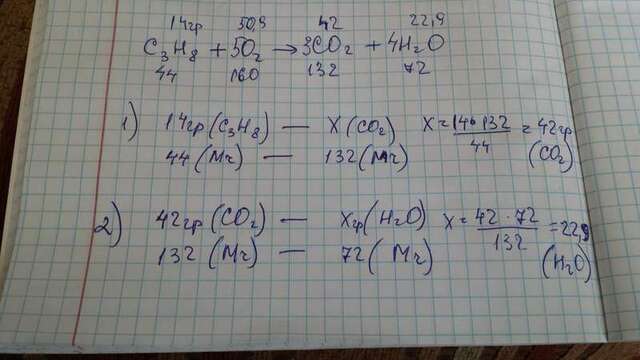 14гр 50,9 42 22,9
C₃H₈ + 5O₂ → 3CO₂ + 4H₂O
44 160 132 72
1) 14гр (C₃H₈) — X (CO₂) X = 14·132 / 44 = 42гр (CO₂)
44 (Mr) — 132 (Mr)
2) 42гр (CO₂) — Xгр (H₂O) X = 42·72 / 132 = 22,9 (H₂O)
132 (Mr) — 72 (Mr)